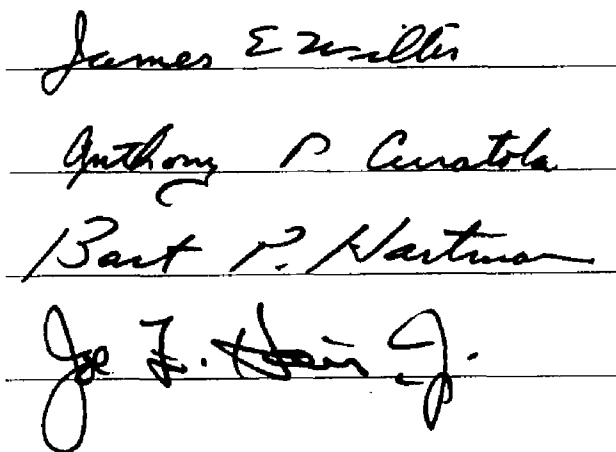 James E Willis
Anthony P. Curatola
Bart P. Hartman
Joe F. Hair Jr.